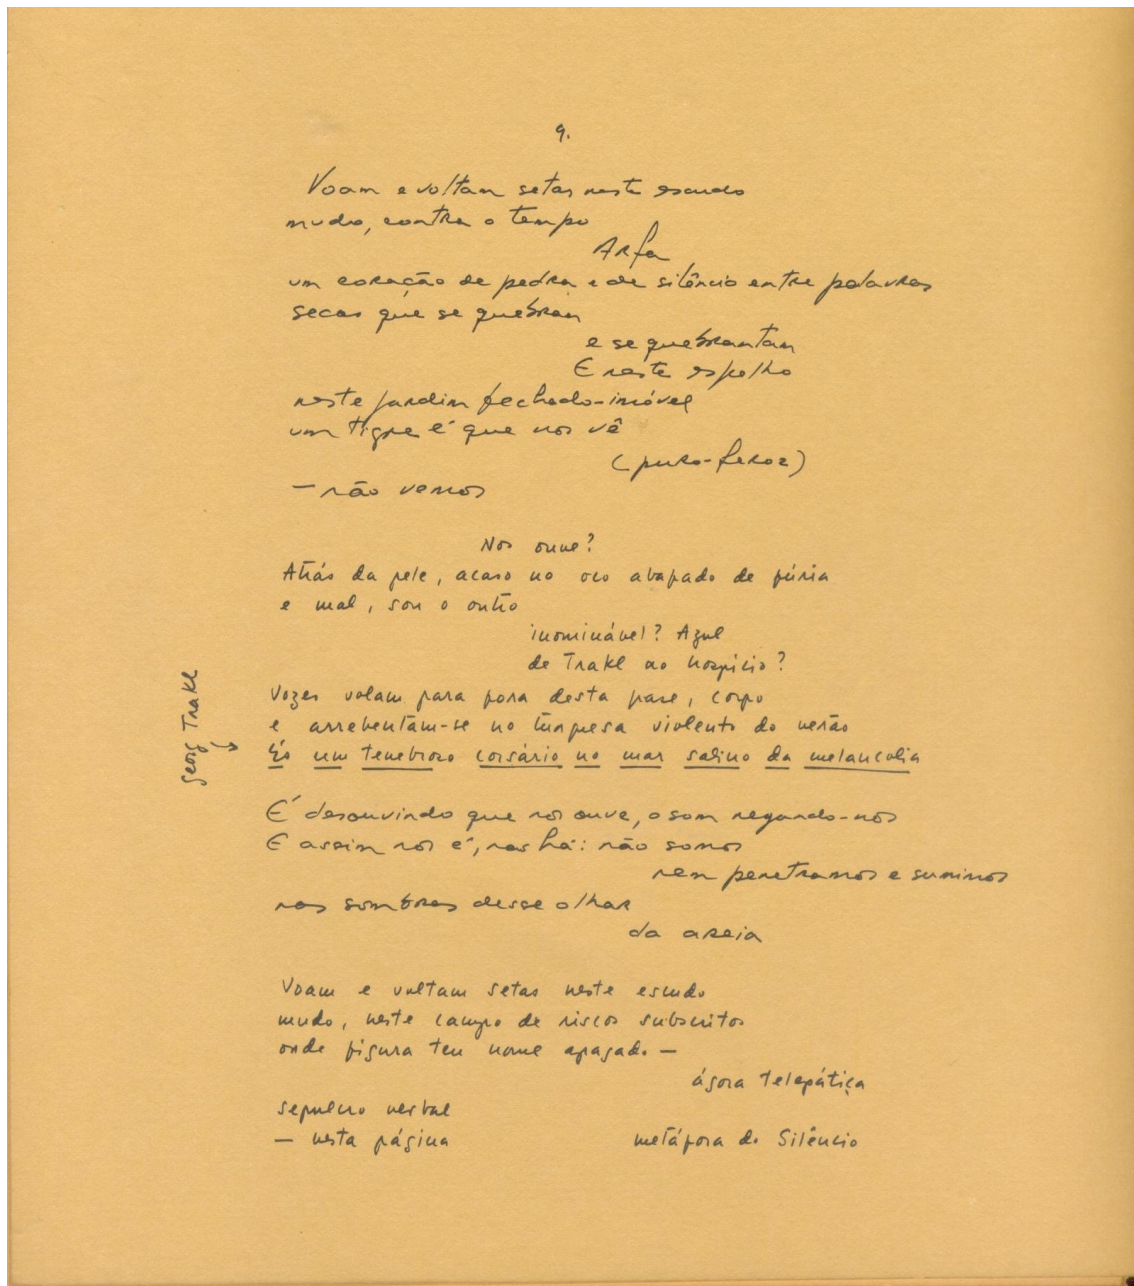 9.
Voam e voltam setas neste escudo
mudo, contra o tempo
Arfa
um coração de pedra e de silêncio entre palavras
secas que se quebram
e se quebrantam
E neste espelho
neste jardim fechado-imóvel
um tigre é que nos vê
(puro-feroz)
— não vemos
Nos ouve?
Atrás da pele, acaso no oco abafado de fúria
e mal, sou o outro
inominável? Azul
de Trakl no hospício?
Vozes volam para fora desta frase, corpo
e arrebentam-se no turquesa violento do verão
És um tenebroso corsário no mar salino da melancolia
Georg Trakl
É desouvindo que nos ouve, o som negando-nos
E assim nos é, nos há: não somos
nem penetramos e sumimos
nas sombras desse olhar
da areia
Voam e voltam setas neste escudo
mudo, neste campo de riscos subscritos
onde figura teu nome apagado —
ágora telepática
sepulcro verbal
— nesta página metáfora do Silêncio